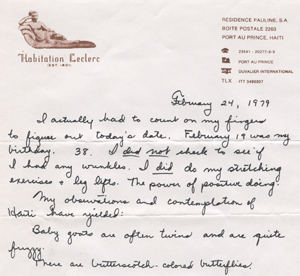 Habitation Leclerc
EST. 1801.
RESIDENCE PAULINE, S.A
BOITE POSTALE 2263
PORT AU PRINCE, HAITI
PORT AU PRINCE
DUVALIER INTERNATIONAL
TLX
February 24, 1979
I actually had to count on my fingers
to figure out today's date. February 19 was my
birthday. 38. I did not check to see if
I had any wrinkles. I did do my stretching
exercises & leg lifts. The power of positive doing.
My observations and contemplation of
Haiti have yielded:
Baby goats are often twins and are quite
fuzzy.
There are butterscotch-colored butterflies.